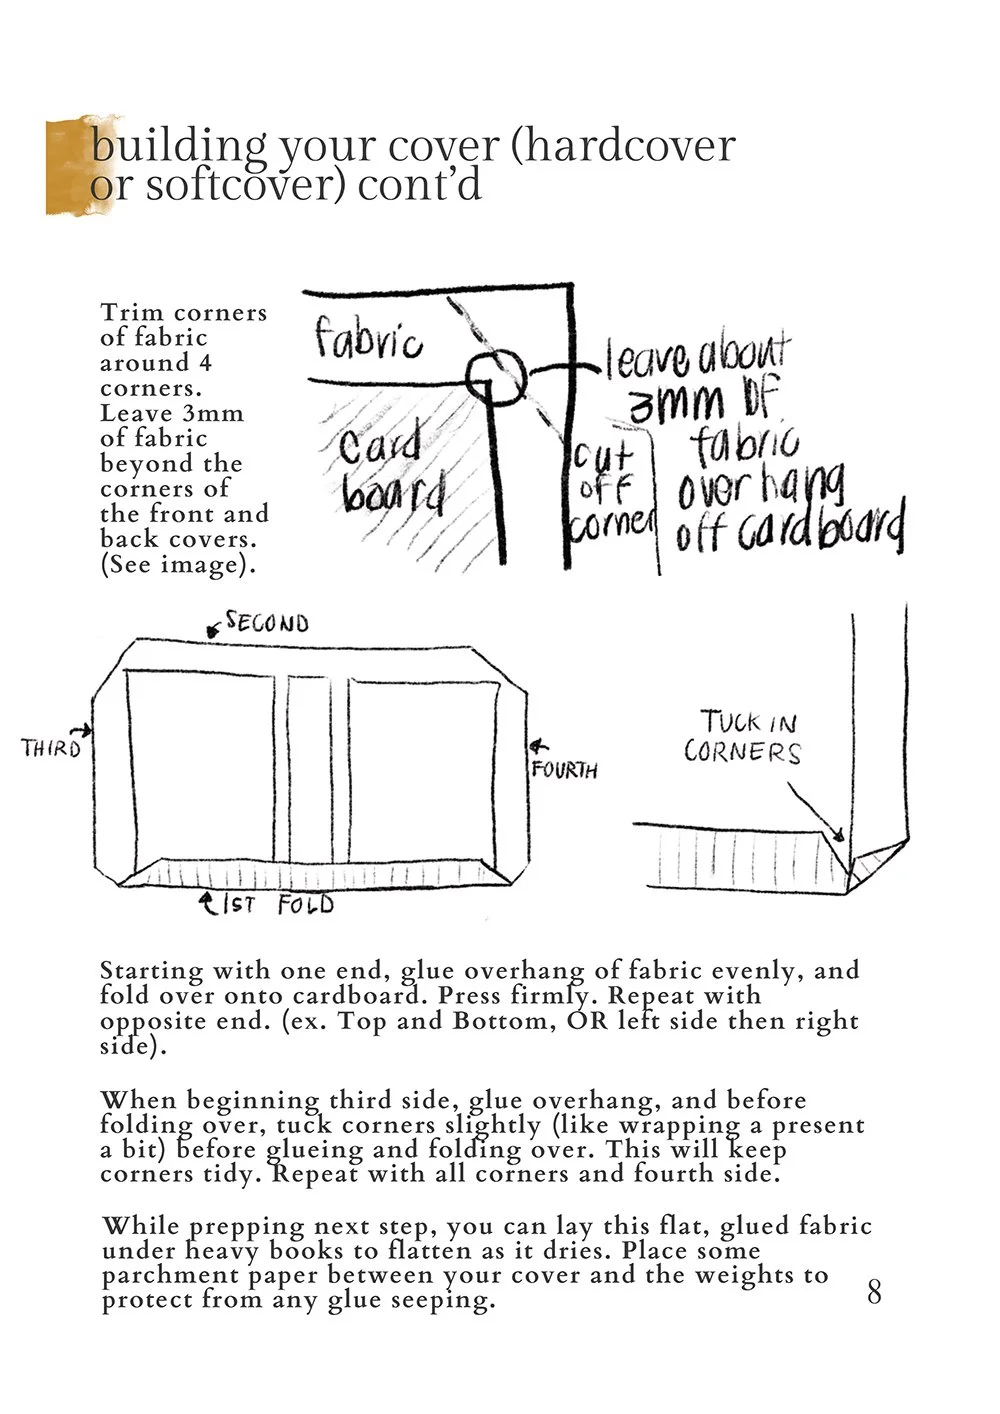 building your cover (hardcover
or softcover) cont'd
Trim corners
of fabric
around 4
corners.
Leave 3mm
of fabric
beyond the
corners of
the front and
back covers.
(See image).
fabric
card
board
cut
off
corner
leave about
3mm of
fabric
overhang
off cardboard
SECOND
THIRD
FOURTH
1ST FOLD
TUCK IN
CORNERS
Starting with one end, glue overhang of fabric evenly, and
fold over onto cardboard. Press firmly. Repeat with
opposite end. (ex. Top and Bottom, OR left side then right
side).
When beginning third side, glue overhang, and before
folding over, tuck corners slightly (like wrapping a present
a bit) before glueing and folding over. This will keep
corners tidy. Repeat with all corners and fourth side.
While prepping next step, you can lay this flat, glued fabric
under heavy books to flatten as it dries. Place some
parchment paper between your cover and the weights to
protect from any glue seeping.
8